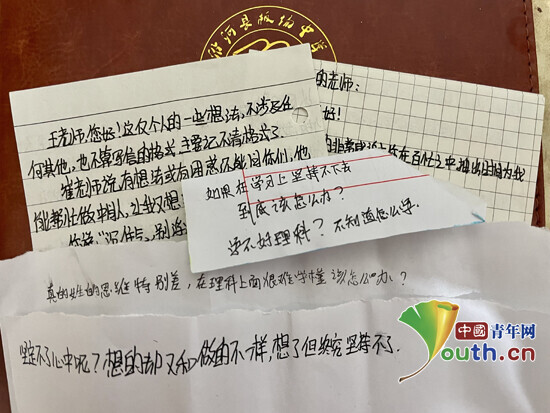 板桥中学
王老师您好！这仅个人的一些想法，不涉及任
何其他，也不算写信的格式，主要记不清格式了。
崔老师说有想法或有困惑不能问你们，他
的老师：
好！
如果在学习上坚持不下去
到底该怎么办？
学不好理科？不知道怎么学.
真的女生的思维特别差，在理科上面很难学懂该怎么办？
坚定不了心中呢？想的却又和做的不一样，想了但终究坚持不了.
中國青年网
Youth.cn